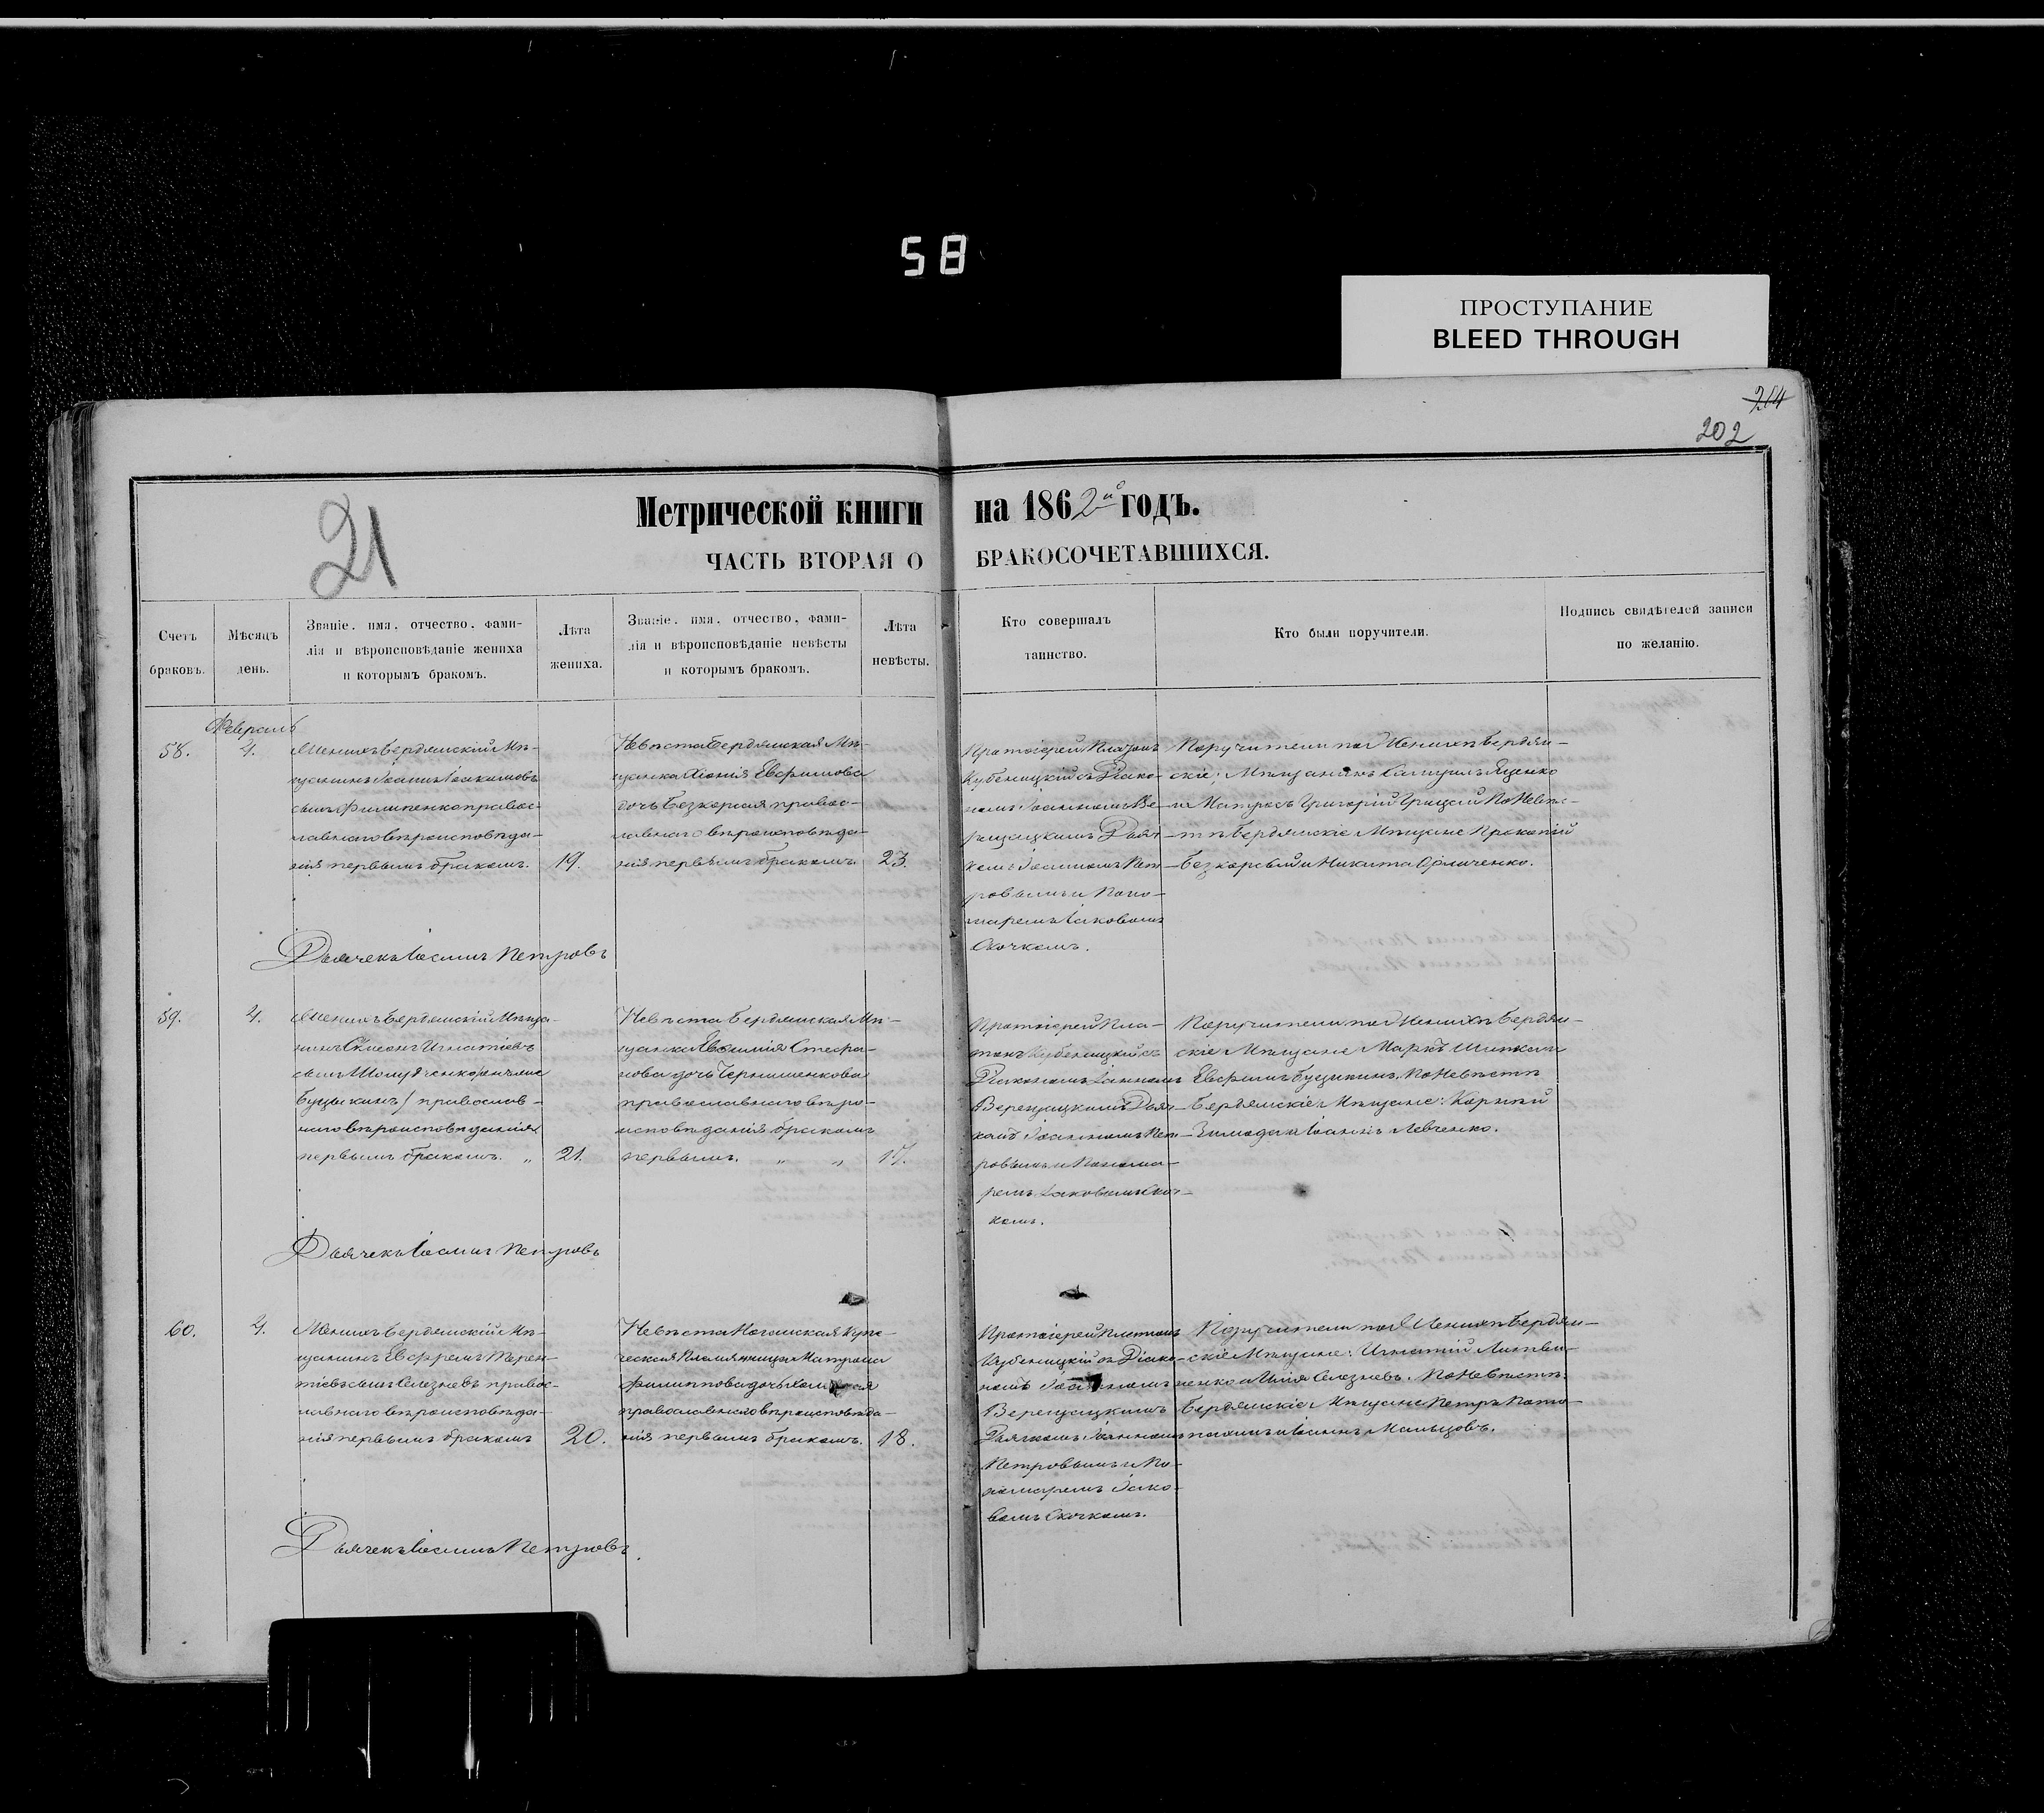 58
ПРОСТУПАНІЕ
BLEED THROUGH
214
202
21
Метрической книги на 1862й годъ.
ЧАСТЬ ВТОРАЯ О БРАКОСОЧЕТАВШИХСЯ.
Счетъ браковъ.
Мѣсяцъ день.
Званіе, имя, отчество, фами-
лія и вѣроисповѣданіе жениха
и которымъ бракомъ.
Лѣта жениха.
Званіе, имя, отчество, фами-
лія и вѣроисповѣданіе невѣсты
и которымъ бракомъ.
Лѣта невѣсты.
Кто совершалъ
таинство.
Кто были поручители.
Подпись свидѣтелей записи
по желанію.
Февраль
58.
4.
Женихъ Бердянскій Мѣ-
щанинъ Іоаннъ Іоакимовъ
сынъ Филипенко правос-
лавнаго вѣроисповѣда-
нія первымъ бракомъ.
19.
Невѣста Бердянская Мѣ-
щанка Ксенія Евфимова
дочь Безкорсая правос-
лавнаго вѣроисповѣда-
нія первымъ бракомъ.
23.
Протоіерей Платонъ
Кубеницкій съ Діако-
номъ Іоанномъ Ве-
рещацкимъ Дьяч-
комъ Іоанномъ Пет-
ровымъ и Поно-
маремъ Іаковомъ
Скочкомъ.
Поручители по Женихѣ Бердян-
скіе: Мѣщанинъ Самуилъ Яценко
и Матросъ Григорій Грицай По Невѣс-
тѣ Бердянскіе Мѣщане Прокопій
Безкорсый и Никита
Дьячекъ Іоаннъ Петровъ
59.
4.
Женихъ Бердянскій Мѣща-
нинъ Симеонъ Игнатіевъ
сынъ
православ-
наго вѣроисповѣданія
первымъ бракомъ. „
21.
Невѣста Бердянская Мѣ-
щанка Евфимія Стефа-
нова дочь Чернишенкова
православнаго вѣро-
исповѣданія бракомъ
первымъ. „ „
17.
Протоіерей Пла-
тонъ Кубеницкій съ
Діакономъ Іоанномъ
Верещацкимъ Дьяч-
комъ Іоанномъ Пет-
ровымъ и Понома-
ремъ Іаковомъ Скоч-
комъ.
Поручители по Женихѣ Бердян-
скіе Мѣщане Маркъ
Евфимъ Буцыкинъ. По Невѣстѣ
Бердянскіе Мѣщане: Корнѣй
Іоаннъ Левченко.
Дьячекъ Іоаннъ Петровъ
60.
4.
Женихъ Бердянскій Мѣ-
щанинъ Ефремъ Терен-
тіевъ сынъ Селезневъ правос-
лавнаго вѣроисповѣда-
нія первымъ бракомъ
20.
Невѣста Ногайская Купе-
ческая Племянница Матрона
Филиппова дочь
православнаго вѣроисповѣда-
нія первымъ бракомъ.
18.
Протоіерей Платонъ
Кубеницкій съ Діако-
номъ Іоанномъ
Верещацкимъ
Дьячкомъ Іоанномъ
Петровымъ и По-
номаремъ Іако-
вомъ Скочкомъ.
Поручители по Женихѣ Бердян-
скіе Мѣщане: Игнатій Литви-
ненко и Илія Селезневъ. По Невѣстѣ:
Бердянскіе Мѣщане Петръ
и Іоаннъ Мальцовъ.
Дьячекъ Іоаннъ Петровъ.